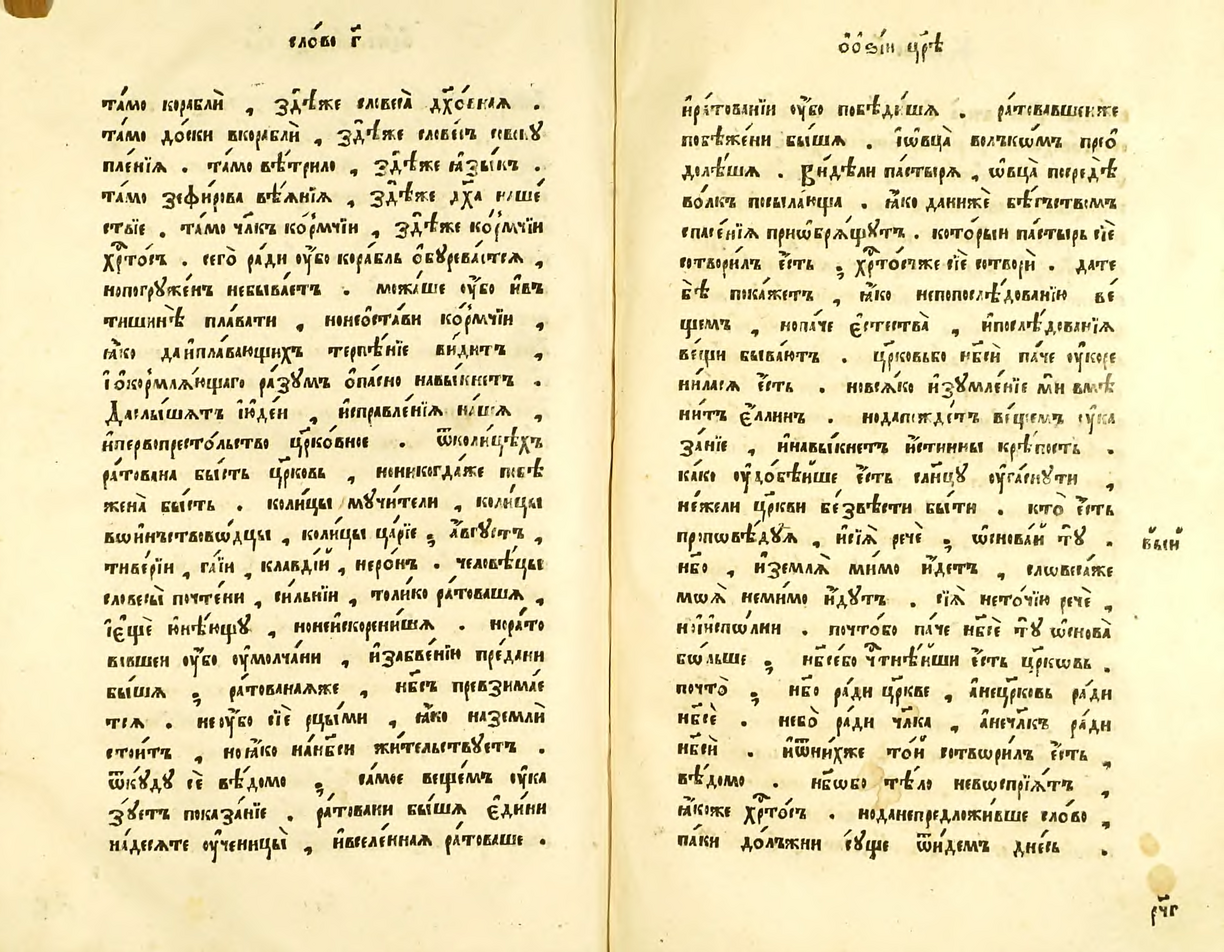 сло́во г҃
та́мо кораблѝ , здѣ́же словеса̀ дх҃о́вная .
та́мо до́ски вкораблѝ , здѣ́же слове́съ совокꙋ
пле́нїѧ . та́мо вѣ́трило , здѣ́же ꙗ҆зы́къ .
та́мо зефи́рова вѣ́ѧнїѧ , здѣ́же дх҃а на́ше
ствїе . та́мо чл҃къ ко́рмчїи , здѣ́же ко́рмчїи
хрⷭ҇то́съ . сего̀ ра́ди оу҆́бо кора́бль ѡ҆бꙋрева́етсѧ ,
непогрꙋже́нъ небыва́етъ . можа́ше оу҆́бо и҆въ
тишинѣ̀ пла́вати , нонеѡ҆ста́ви ко́рмчїи ,
ꙗ҆́ко даи҆пла́вающихъ терпѣ́нїе ви́дитъ ,
і҆ѡ҆кормлѧ́ющаго ра́зꙋмъ ѻ҆па́сно навы́кнетъ .
Даслы́шатъ і҆ꙋде́и , и҆справле́нїѧ на́ша ,
и҆первопресто́льство цр҃ко́вное . ѿколи́цѣхъ
ра́това́на бы́сть цр҃ковь , ноникогда́же побѣ
жена̀ бы́сть . коли́цы мꙋчи́тели , коли́цы
вѡ́инъствовѡдцы , коли́цы ца́рїе ; а҆́вгꙋстъ ,
тиве́рїи , га́їи , кла́вдїи , неро́нъ . человѣ́цы
словесы̀ почте́ни , си́льнїи , толи́ко ра́товаша ,
і҆є҆щѐ ю҆нѣ́ющꙋ , нонеи҆скорени́ша . нора́то
вавшеи оу҆́бо оу҆молча́ни , и҆забве́нїю пре́дани
бы́ша ; ра́тованаѧже , нб҃съ превзима́е
тсѧ . неоу҆́бо сїѐ рцы́ми , ꙗ҆́ко наземлѝ
стои́тъ , ноꙗ҆́ко нанб҃си жи́тельствꙋетъ .
ѿкꙋ́дꙋ сѐ вѣ́домо ; са́мое ве́щемъ оу҆ка
зꙋ́етъ показа́нїе . ра́товани бы́ша є҆ди́ни
на́десѧте оу҆ченицы̀ , и҆вселе́нная ра́товаше .
ѡ҆ѻ҆зі́и цр҃ѣ̀
и҆ра́тованїи оу҆́бо побѣди́ша . ра́товавшеиже
побѣже́ни бы́ша . і҆ѻ҆́вца̀ волъкѡ́мъ преѻ҆
долѣ́ша . Ви́дѣли па́стырѧ , ѻ҆вца̀ посредѣ̀
во́лкъ посыла́юща . ꙗ҆́ко данижѐ бѣ́гъствомъ
спасе́нїѧ приѻ҆брѧ́щꙋтъ . кото́рыи па́стырь сїѐ
сотвори́лъ є҆́сть ; хрⷭ҇то́съже сїѐ сотворѝ . дате
бѣ̀ пока́жетъ , ꙗ҆́ко непопослѣ́дованїю ве́
щемъ , нопа́че є҆стества̀ , и҆послѣ́дованїѧ
ве́щи быва́ютъ . цр҃ковьбо нб҃сѝ па́че оу҆коре
ни́лася є҆́сть . новсѧ́ко и҆зꙋмле́нїе мѝ вмѣ
ни́тъ є҆́ллинъ . нода́пождетъ ве́щемъ оу҆ка
за́нїе , и҆навы́кнетъ и҆́стинны крѣ́пость .
ка́ко оу҆до́бѣише є҆́сть со́лнцꙋ оу҆гаснꙋ́ти ,
не́жели цр҃кви без̾вѣ́сти бы́ти . кто̀ є҆́сть
пропѡвѣ́дꙋѧ , и҆сїѧ̀ речѐ ; ѡ҆снова́и тꙋ̀ .
нб҃о , и҆землѧ̀ мимо и҆́детъ , слѡвеса́же
моѧ̀ немимо и҆́дꙋтъ . сїѧ̀ нето́чїю речѐ ,
нои҆и҆спо́лни . почто́бо па́че нб҃сѐ тꙋ̀ ѡ҆снова̀
бо́льше ; нб҃се́бо чⷭ҇тнѣ́иши є҆́сть цр҃ковь .
почто̀ ; нб҃о ра́ди цр҃кве , а҆нецр҃ковь ра́ди
нб҃сѐ . не́бо ра́ди чл҃ка , а҆нечл҃къ ра́ди
нб҃сѝ . и҆ѿни́хже то́и сотвори́лъ є҆́сть ,
вѣ́домо . нб҃ѡбо тѣ́ло невѡспрїѧ́тъ ,
ꙗ҆́коже хрⷭ҇то́съ . ноданепредложи́вше сло́во ,
па́ки до́лъжни сꙋ́ще ѿи́демъ дне́сь .
рч҃г